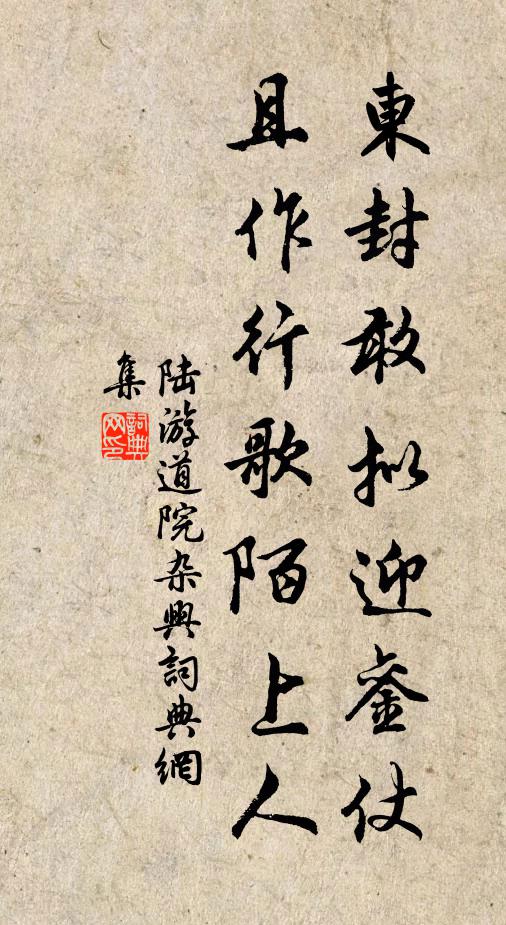 東封敢拟迎銮仗
且作行歌陌上人
陆游道院杂興詞典網
集
詞典网印